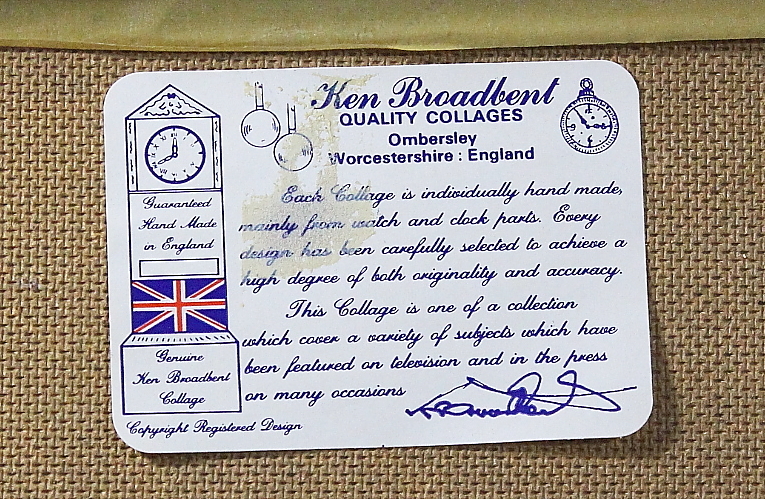 Ken Broadbent
QUALITY COLLAGES
Ombersley
Worcestershire : England
Each Collage is individually hand made,
mainly from watch and clock parts. Every
design has been carefully selected to achieve a
high degree of both originality and accuracy.
This Collage is one of a collection
which cover a variety of subjects which have
been featured on television and in the press
on many occasions
Guaranteed
Hand Made
in England
Genuine
Ken Broadbent
Collage
Copyright Registered Design